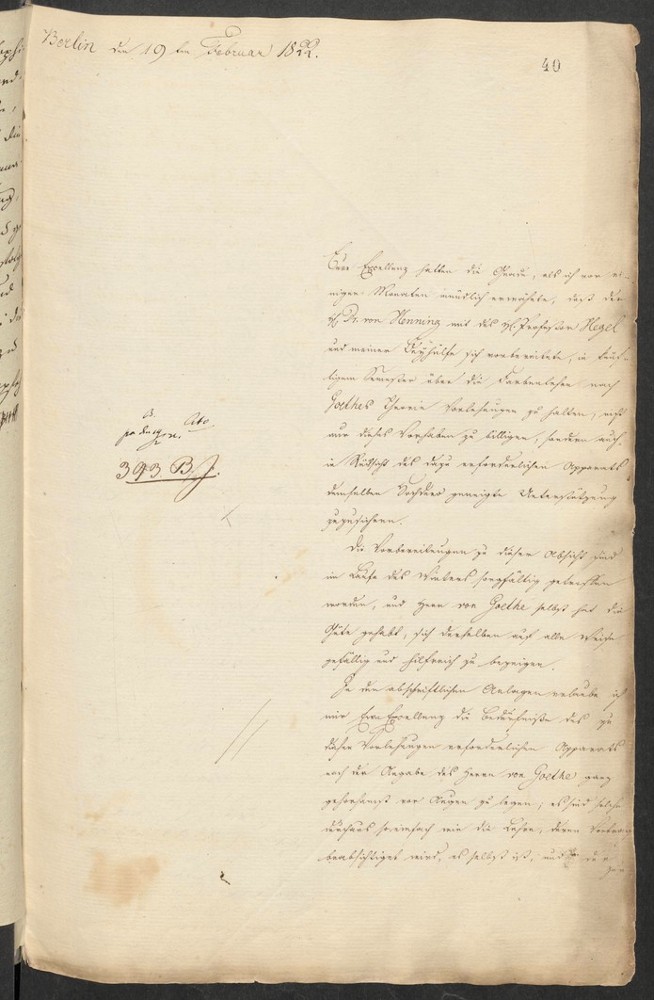 Berlin den 19ten Februar 1822.
40
Eure Excellenz hatten die Gnade, als ich vor ei-
nigen Monaten mündlich erwähnte, daß der
H. Dr. von Henning mit des H. Professor Hegel
und meiner Beyhülfe sich vorbereitete, in künf-
tigem Semester über die Farbenlehre nach
Goethes Theorie Vorlesungen zu halten, nicht
nur dieses Vorhaben zu billigen, sondern auch
in Rücksicht des dazu erforderlichen Apparats
demselben Hochdero geneigte Unterstützung
zuzusichern.
Cito
393 B. J.
Die Vorbereitungen zu dieser Absicht sind
im Laufe des Winters sorgfältig getroffen
worden, und Herr von Goethe selbst hat die
Güte gehabt, sich denselben auf alle Weise
gefällig und hilfreich zu bezeigen.
In den abschriftlichen Anlagen erlaube ich
mir Eurer Excellenz die Bedürfniße des zu
diesen Vorlesungen erforderlichen Apparats
nach der Angabe des Herrn von Goethe ganz
gehorsamst vor Augen zu legen; es sind solche
durchaus so einfach wie die Lehre, deren Vortrag
beabsichtiget wird, es selbst ist, und